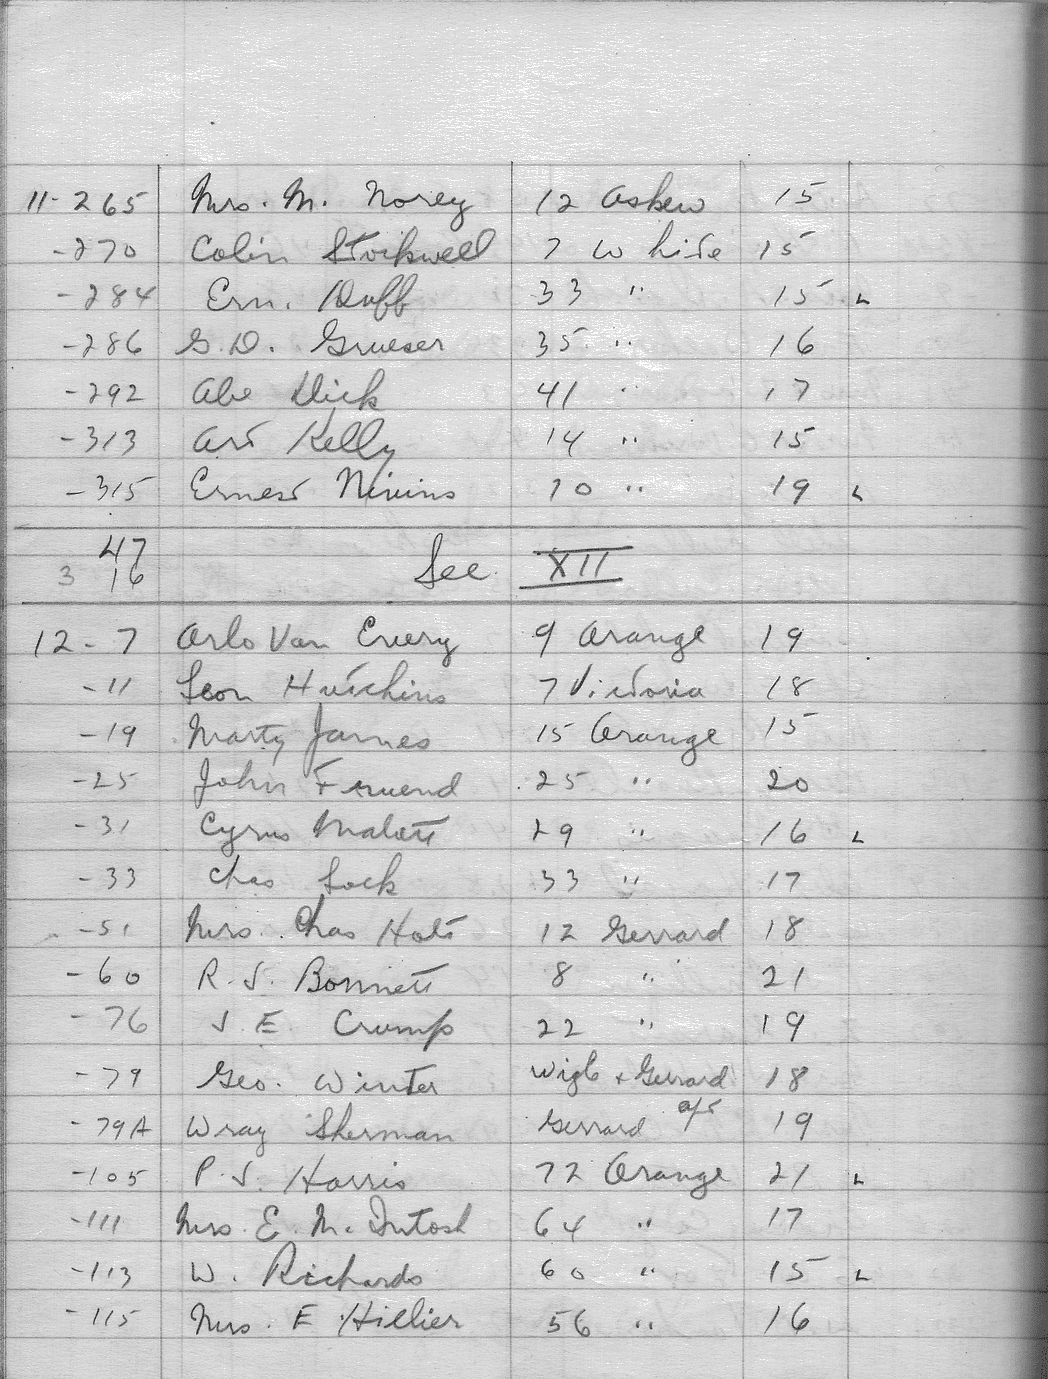 11-265 Mrs. M. Norey 12 Askew 15
-270 Colin Stockwell 7 White 15
-284 Ern. Duff 33 " 15 L
-286 G.D. Grueser 35 " 16
-292 Abe Dick 41 " 17
-313 Art Kelly 14 " 15
-315 Ernest Nivins 70 " 19 L
47
3 16 See XII
12-7 Arlo Van Every 9 Orange 19
-11 Leon Hutchins 7 Victoria 18
-19 Marty James 15 Orange 15
-25 John Fruend 25 " 20
-31 Cyrus Malott 29 " 16 L
-33 Chas Lock 33 " 17
-51 Mrs. Chas Hott 12 Gerrard 18
-60 R. J. Bonnett 8 " 21
-76 J. E. Crump 22 " 19
-79 Geo. Winter Wigle + Gerrard 18
-79A Wray Sherman Gerrard apt 19
-105 P. J. Harris 72 Orange 21 L
-111 Mrs. E. McIntosh 64 " 17
-113 W. Richards 60 " 15 L
-115 Mrs. E Hillier 56 " 16